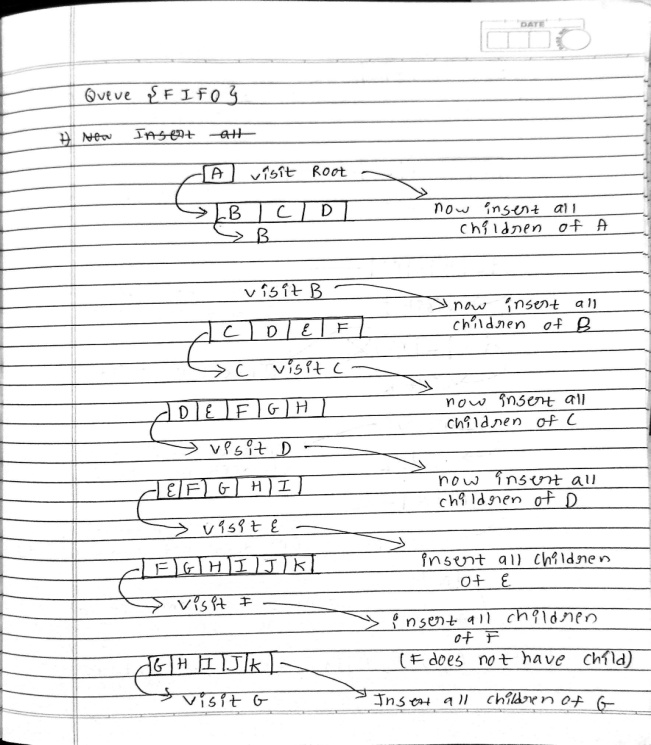 DATE
Queue {FIFO}
1) Now Insert all
A visit Root
B C D now insert all
B children of A
visit B
now insert all
C D E F children of B
C visit C
D E F G H now insert all
children of C
visit D
E F G H I now insert all
children of D
visit E
F G H I J K insert all children
of E
visit F
insert all children
of F
G H I J K (F does not have child)
visit G Insert all children of G